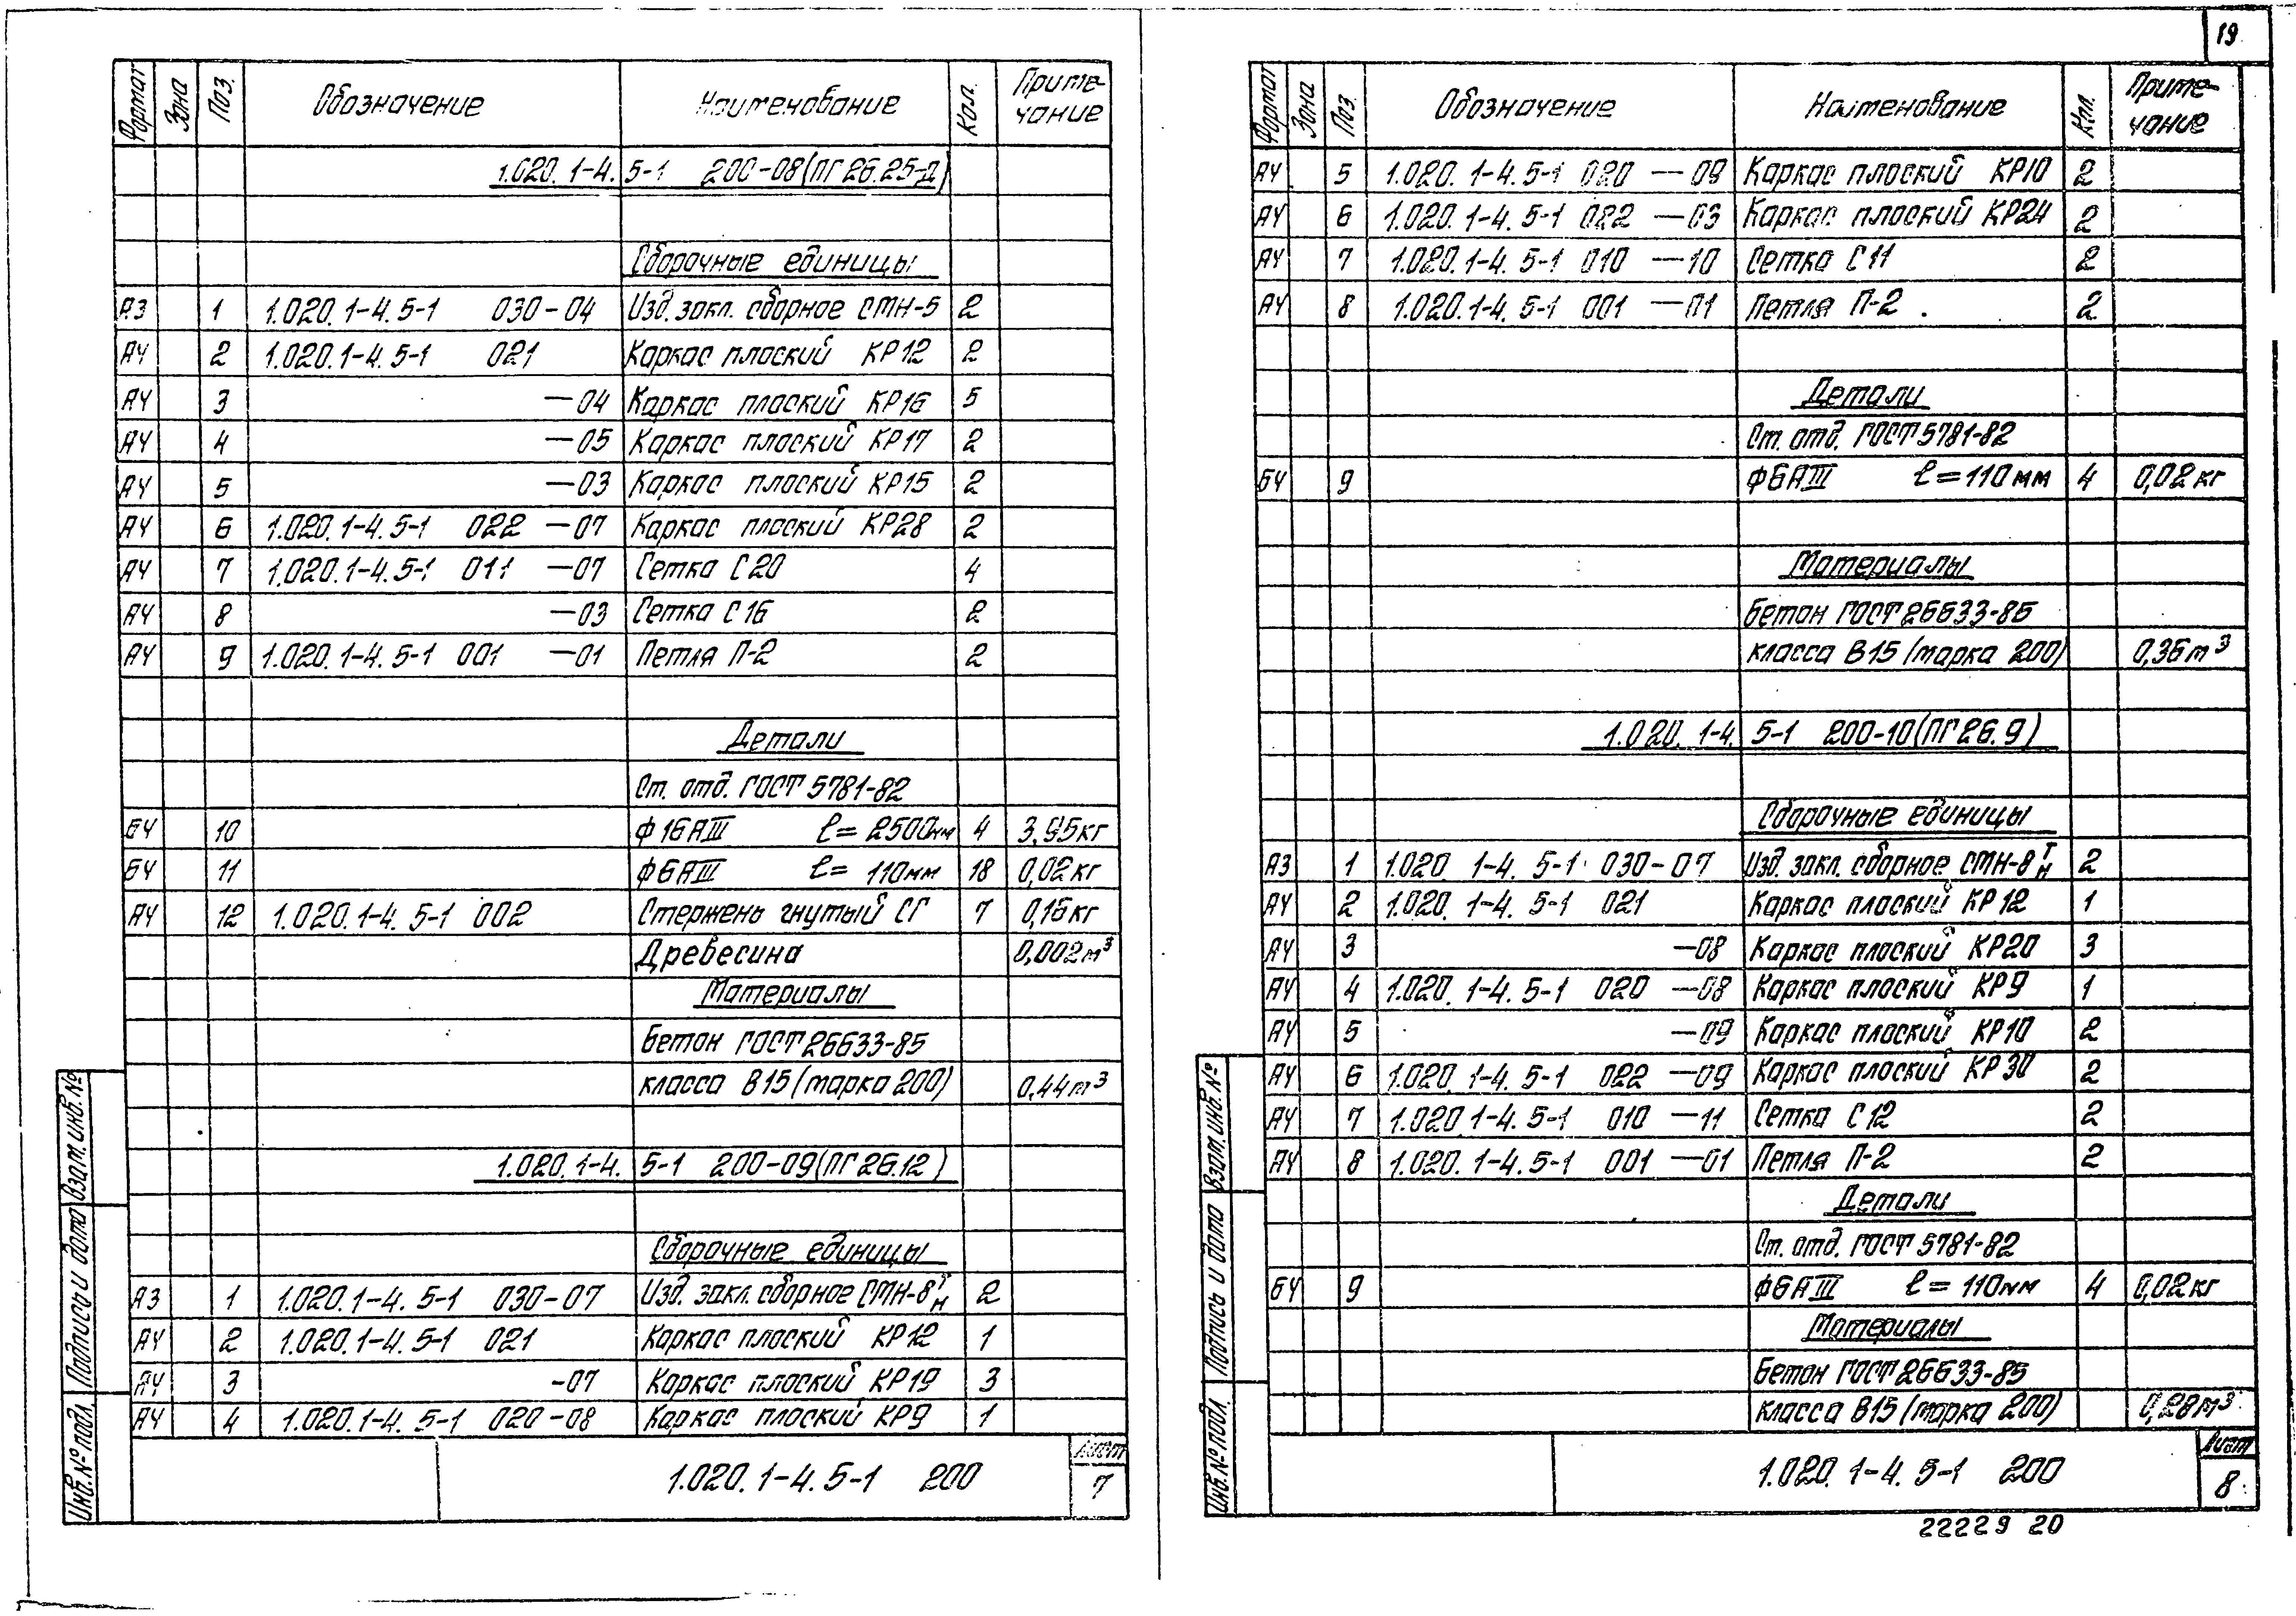 19
Формат Зона Поз. Обозначение Наименование Кол. Приме-чание
1.020.1-4.5-1 200-08(ПГ26.25-Д)
Сборочные единицы
А3 1 1.020.1-4.5-1 030-04 Изд. закл. сборное СМН-5 2
А4 2 1.020.1-4.5-1 021 Каркас плоский КР12 2
А4 3 -04 Каркас плоский КР16 5
А4 4 -05 Каркас плоский КР17 2
А4 5 -03 Каркас плоский КР15 2
А4 6 1.020.1-4.5-1 022 -07 Каркас плоский КР28 2
А4 7 1.020.1-4.5-1 011 -07 Сетка С20 4
А4 8 -03 Сетка С16 2
А4 9 1.020.1-4.5-1 001 -01 Петля П-2 2
Детали
Ст. отд. ГОСТ 5781-82
БЧ 10 Ф16АIII ℓ= 2500мм 4 3,95кг
БЧ 11 Ф6АIII ℓ= 110мм 18 0,02кг
А4 12 1.020.1-4.5-1 002 Стержень гнутый СГ 7 0,16кг
Древесина 0,002м³
Материалы
Бетон ГОСТ 26633-85
класса В15 (марка 200) 0,44м³
1.020.1-4.5-1 200-09(ПГ26.12)
Сборочные единицы
А3 1 1.020.1-4.5-1 030-07 Изд. закл. сборное СМН-8 Т/Н 2
А4 2 1.020.1-4.5-1 021 Каркас плоский КР12 1
А4 3 -07 Каркас плоский КР19 3
А4 4 1.020.1-4.5-1 020-08 Каркас плоский КР9 1
Инв.№ подл. Подпись и дата Взам.инв.№
1.020.1-4.5-1 200
Лист
7
Формат Зона Поз. Обозначение Наименование Кол. Приме-чание
А4 5 1.020.1-4.5-1 020 -09 Каркас плоский КР10 2
А4 6 1.020.1-4.5-1 022 -03 Каркас плоский КР24 2
А4 7 1.020.1-4.5-1 010 -10 Сетка С11 2
А4 8 1.020.1-4.5-1 001 -01 Петля П-2 2
Детали
Ст. отд. ГОСТ 5781-82
БЧ 9 Ф6АIII ℓ=110мм 4 0,02кг
Материалы
Бетон ГОСТ 26633-85
класса В15 (марка 200) 0,36м³
1.020.1-4.5-1 200-10(ПГ26.9)
Сборочные единицы
А3 1 1.020.1-4.5-1 030-07 Изд. закл. сборное СМН-8 Т/Н 2
А4 2 1.020.1-4.5-1 021 Каркас плоский КР12 1
А4 3 -08 Каркас плоский КР20 3
А4 4 1.020.1-4.5-1 020 -08 Каркас плоский КР9 1
А4 5 -09 Каркас плоский КР10 2
А4 6 1.020.1-4.5-1 022 -09 Каркас плоский КР30 2
А4 7 1.020.1-4.5-1 010 -11 Сетка С12 2
А4 8 1.020.1-4.5-1 001 -01 Петля П-2 2
Детали
Ст. отд. ГОСТ 5781-82
БЧ 9 Ф6АIII ℓ= 110мм 4 0,02кг
Материалы
Бетон ГОСТ 26633-85
класса В15 (марка 200) 0,28м³
Инв.№ подл. Подпись и дата Взам.инв.№
1.020.1-4.5-1 200
Лист
8
22229 20